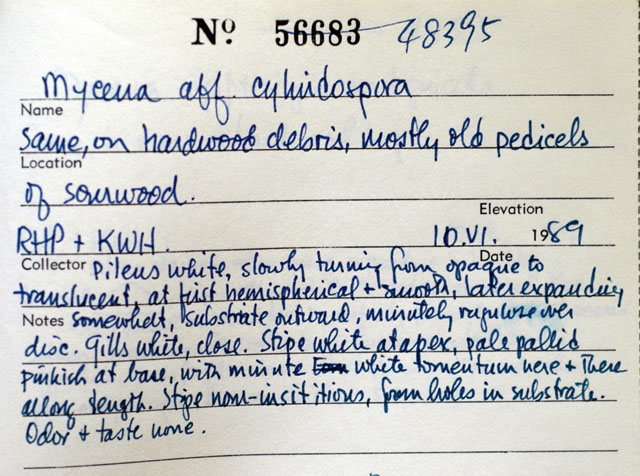 Nº 56683 48395
Mycena aff. cylindospora
Name
Same, on hardwood debris, mostly old pedicels
Location
of sourwood.
Elevation
RHP + KWH. 10.VI. 1989
Collector Date
Pileus white, slowly turning from opaque to
translucent, at first hemispherical + smooth, later expanding
Notes somewhat, substrate outward, minutely rugulose over
disc. Gills white, close. Stipe white at apex, pale pallid
pinkish at base, with minute white tomentum here + there
along length. Stipe non-insititious, from holes in substrate.
Odor + taste none.